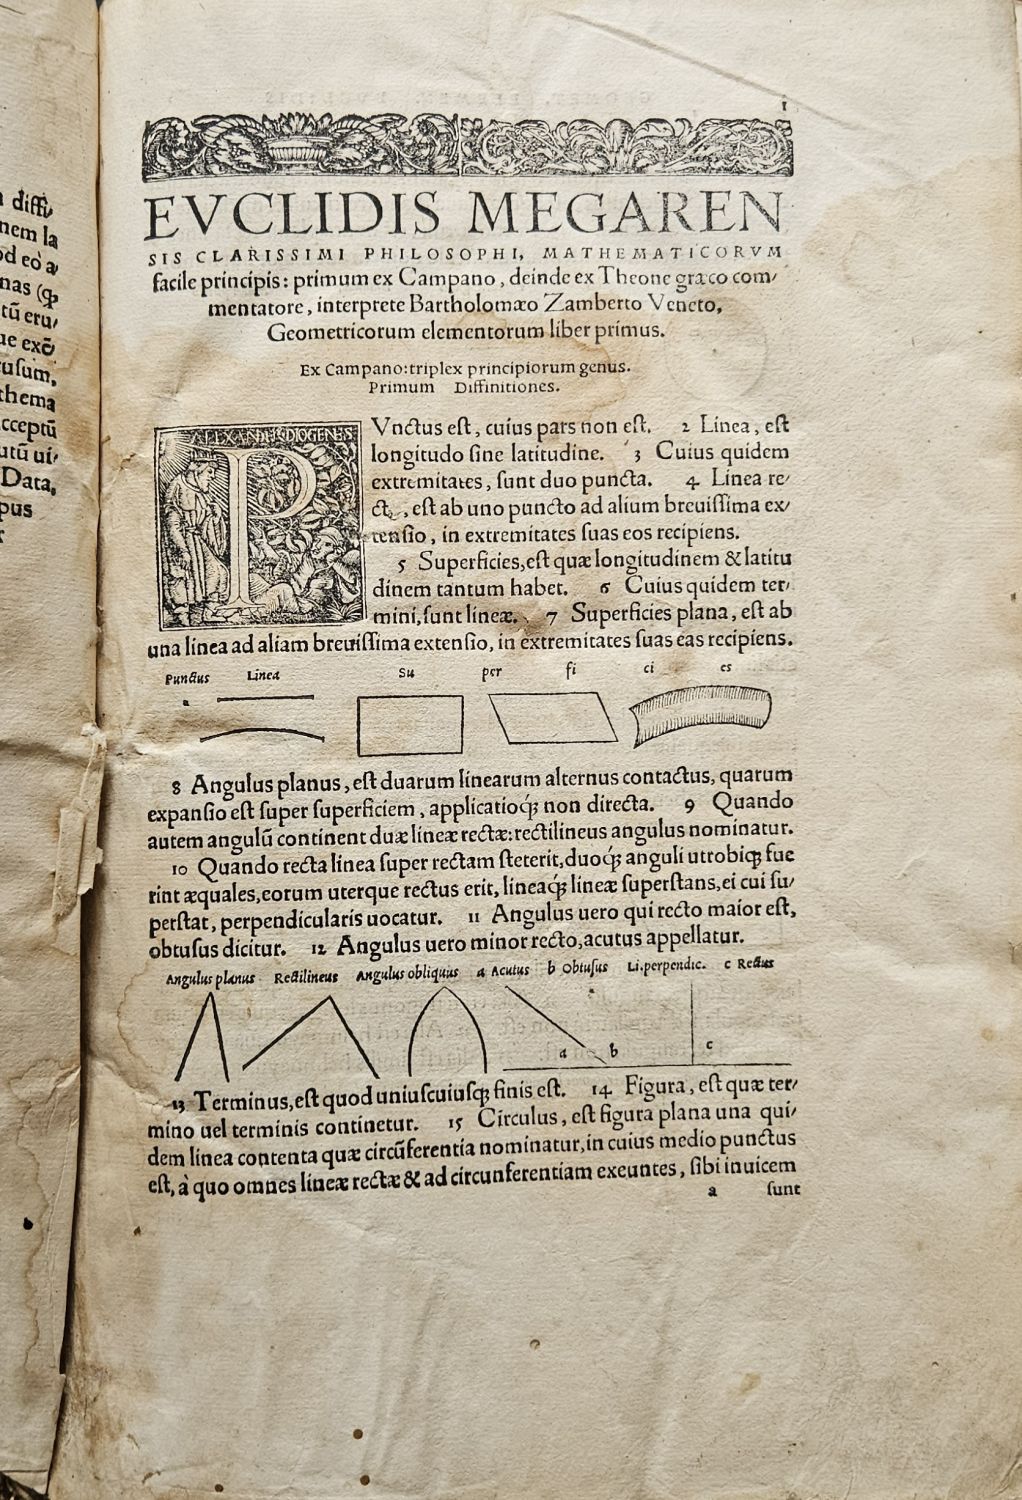 diffi/
nem la
od eò a/
nas (ꝙ
tũ eru/
ue exẽ
rusum,
thema
cceptũ
utũ ui/
Data,
pus
r
1
EVCLIDIS MEGAREN
SIS CLARISSIMI PHILOSOPHI, MATHEMATICORVM
facile principis: primum ex Campano, deinde ex Theone græco com/
mentatore, interprete Bartholomæo Zamberto Veneto,
Geometricorum elementorum liber primus.
Ex Campano: triplex principiorum genus.
Primum Diffinitiones.
ALEXANDER DIOGENES
PVnctus est, cuius pars non est. 2 Linea, est
longitudo sine latitudine. 3 Cuius quidem
extremitates, sunt duo puncta. 4 Linea re/
ct, est ab uno puncto ad alium breuissima ex/
tensio, in extremitates suas eos recipiens.
5 Superficies, est quæ longitudinem & latitu
dinem tantum habet. 6 Cuius quidem ter/
mini, sunt lineæ. 7 Superficies plana, est ab
una linea ad aliam breuissima extensio, in extremitates suas eas recipiens.
Punctus Linea Su per fi ci es
8 Angulus planus, est duarum linearum alternus contactus, quarum
expansio est super superficiem, applicatioq́; non directa. 9 Quando
autem angulũ continent duæ lineæ rectæ: rectilineus angulus nominatur.
10 Quando recta linea super rectam steterit, duoq́; anguli utrobiq; fue
rint æquales, eorum uterque rectus erit, lineaq́; lineæ superstans, ei cui su/
perstat, perpendicularis uocatur. 11 Angulus uero qui recto maior est,
obtusus dicitur. 12 Angulus uero minor recto, acutus appellatur.
Angulus planus Rectilineus Angulus obliquus a Acutus b Obtusus Li. perpendic. c Rectus
a b c
13 Terminus, est quod uniuscuiusq; finis est. 14 Figura, est quæ ter/
mino uel terminis continetur. 15 Circulus, est figura plana una qui/
dem linea contenta quæ circũferentia nominatur, in cuius medio punctus
est, à quo omnes lineæ rectæ & ad circunferentiam exeuntes, sibi inuicem
a sunt